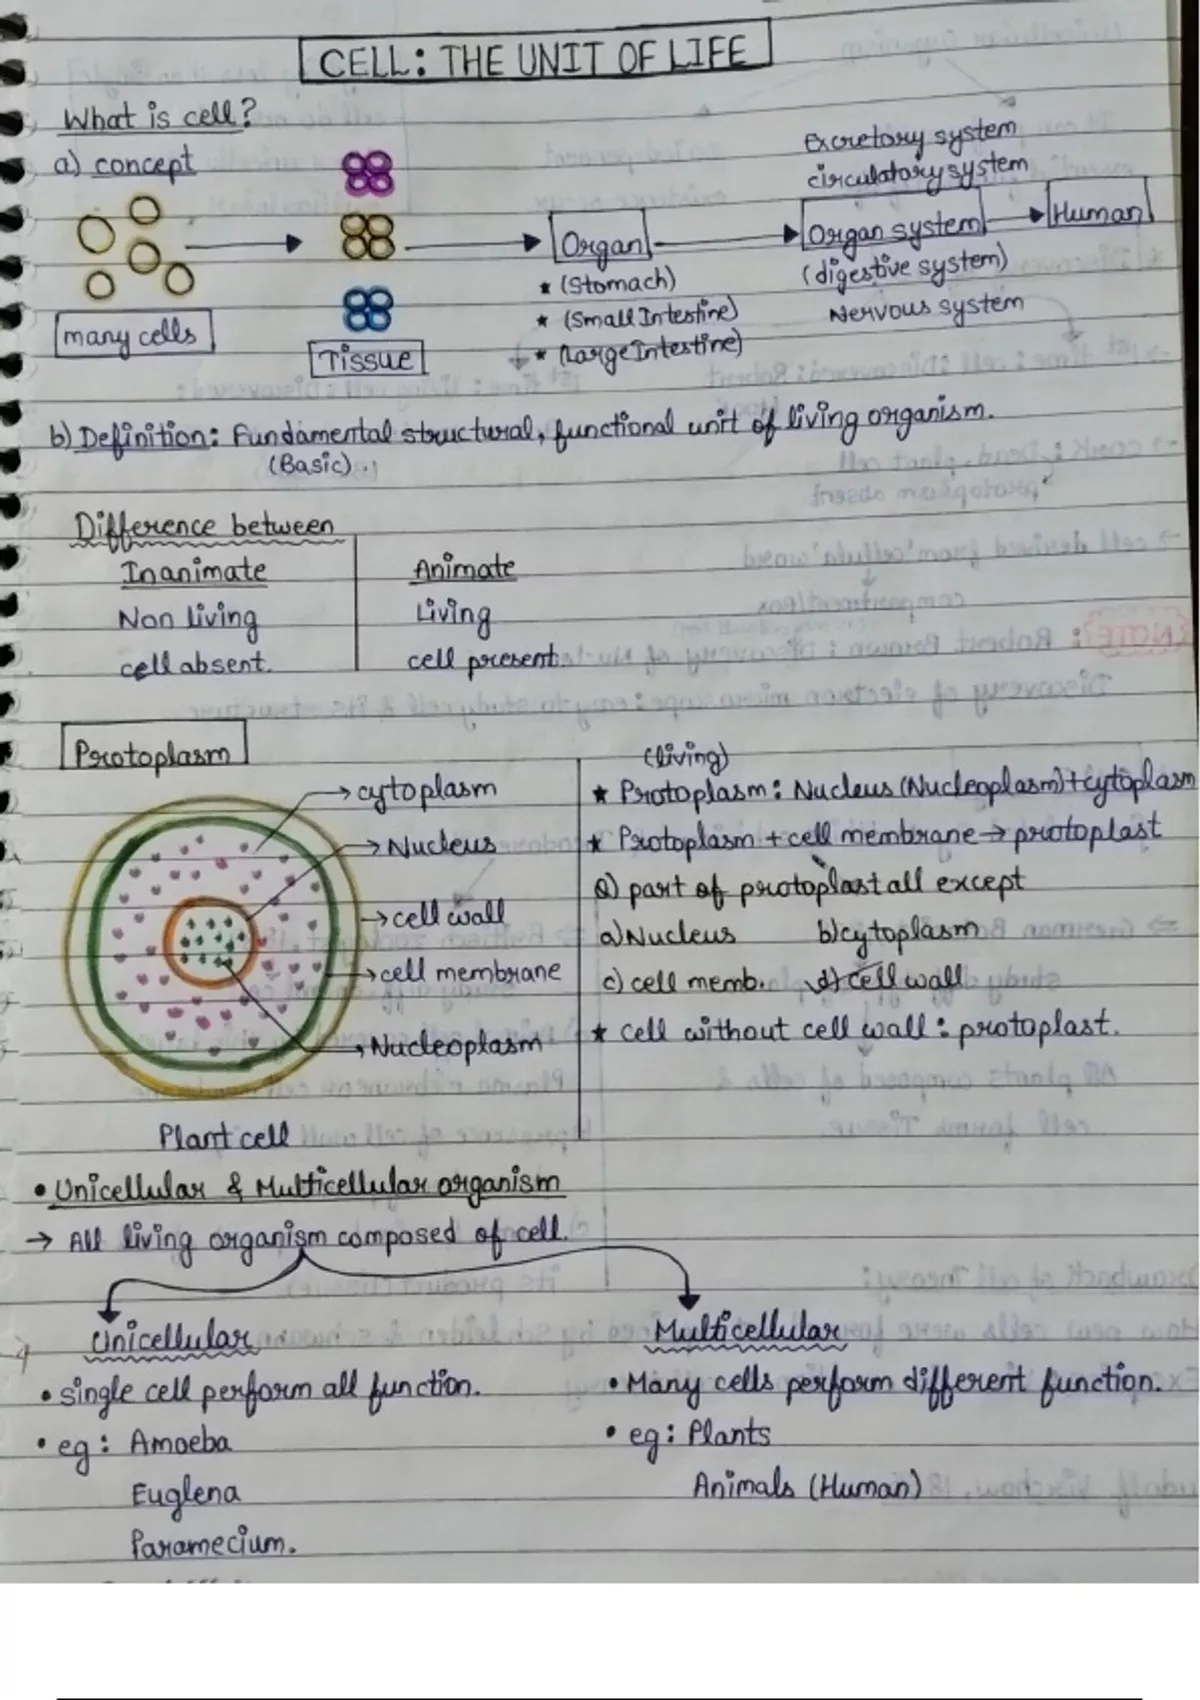 CELL: THE UNIT OF LIFE
What is cell?
a) concept
many cells
Tissue
Organ
* (Stomach)
* (Small Intestine)
* (Large Intestine)
Excretory system
circulatory system
Organ system
(digestive system)
Nervous system
Human
b) Definition: Fundamental structural, functional unit of living organism.
(Basic)
Difference between
Inanimate
Non living
cell absent.
Animate
Living
cell present.
Protoplasm
→ cytoplasm
→ Nucleus
→ cell wall
→ cell membrane
→ Nucleoplasm
Plant cell
(living)
* Protoplasm: Nucleus (Nucleoplasm)+cytoplasm
* Protoplasm + cell membrane → protoplast
Q) part of protoplast all except
a) Nucleus b) cytoplasm
c) cell memb. d) cell wall
* cell without cell wall: protoplast.
• Unicellular & Multicellular organism
→ All living organism composed of cell.
Unicellular
• single cell perform all function.
• eg: Amoeba
Euglena
Paramecium.
Multicellular
• Many cells perform different function.
• eg: Plants
Animals (Human)